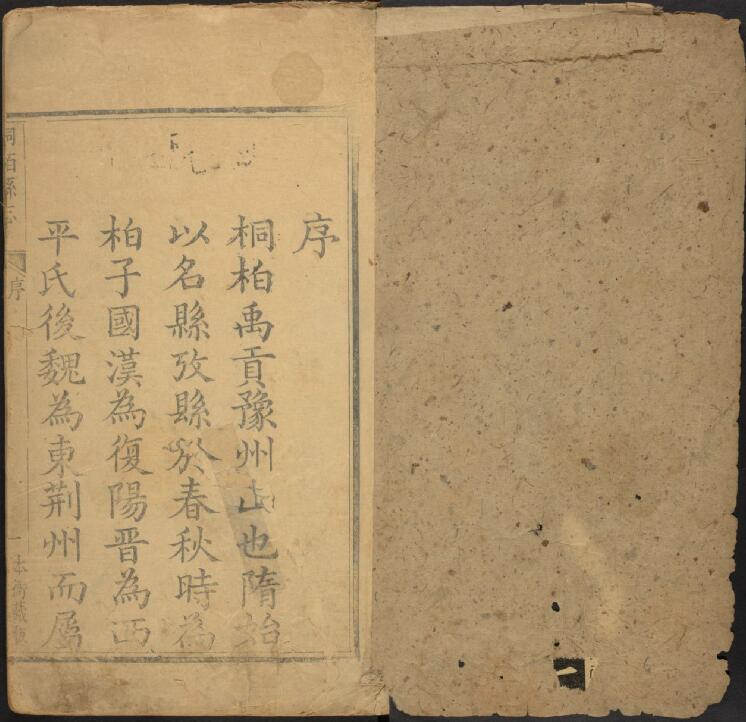 序
桐柏禹貢豫州山也隋始
以名縣攷縣於春秋時為
柏子國漢為復陽晋為西
平氏後魏為東荆州而屬
桐栢縣志
序
一
本衙藏板
一